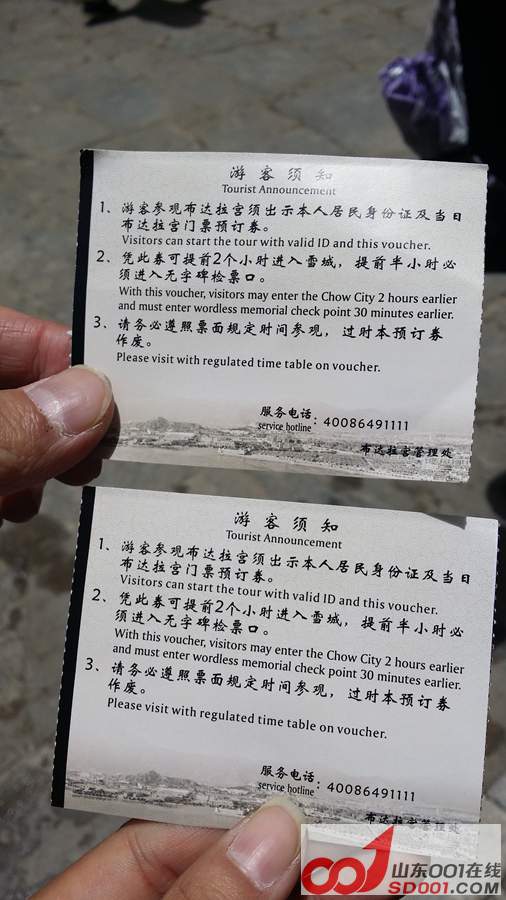 游客须知
Tourist Announcement
1、游客参观布达拉宫须出示本人居民身份证及当日
布达拉宫门票预订券。
Visitors can start the tour with valid ID and this voucher.
2、凭此券可提前2个小时进入雪城，提前半小时必
须进入无字碑检票口。
With this voucher, visitors may enter the Chow City 2 hours earlier
and must enter wordless memorial check point 30 minutes earlier.
3、请务必遵照票面规定时间参观，过时本预订券
作废。
Please visit with regulated time table on voucher.
服务电话
service hotline：40086491111
布达拉宫管理处
游客须知
Tourist Announcement
1、游客参观布达拉宫须出示本人居民身份证及当日
布达拉宫门票预订券。
Visitors can start the tour with valid ID and this voucher.
2、凭此券可提前2个小时进入雪城，提前半小时必
须进入无字碑检票口。
With this voucher, visitors may enter the Chow City 2 hours earlier
and must enter wordless memorial check point 30 minutes earlier.
3、请务必遵照票面规定时间参观，过时本预订券
作废。
Please visit with regulated time table on voucher.
服务电话
service hotline：40086491111
布达拉宫管理处
001
山东001在线
SD001.COM